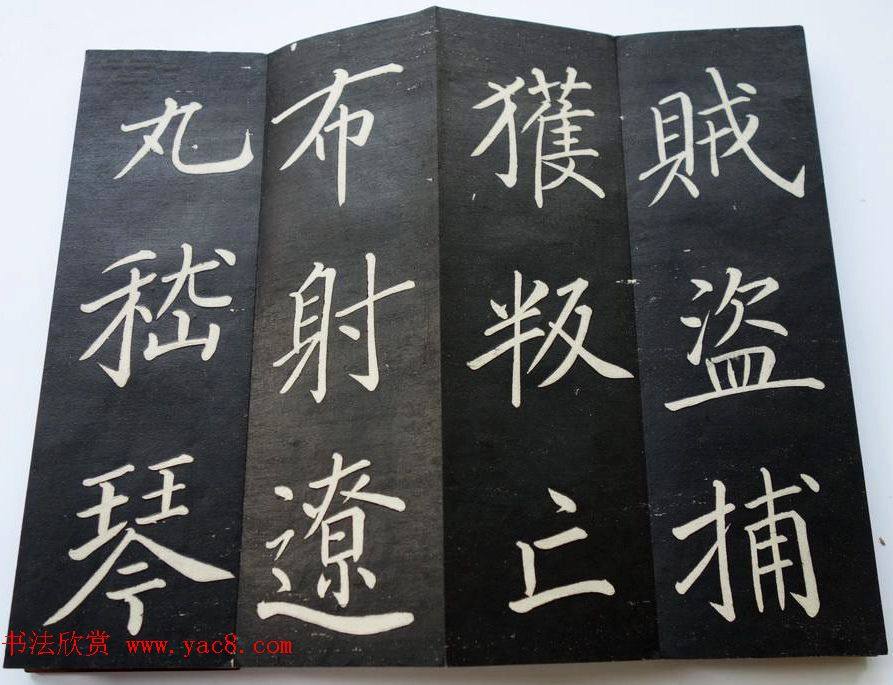 賊盜捕
獲叛亡
布射遼
丸嵇琴
书法欣赏 www.yac8.com